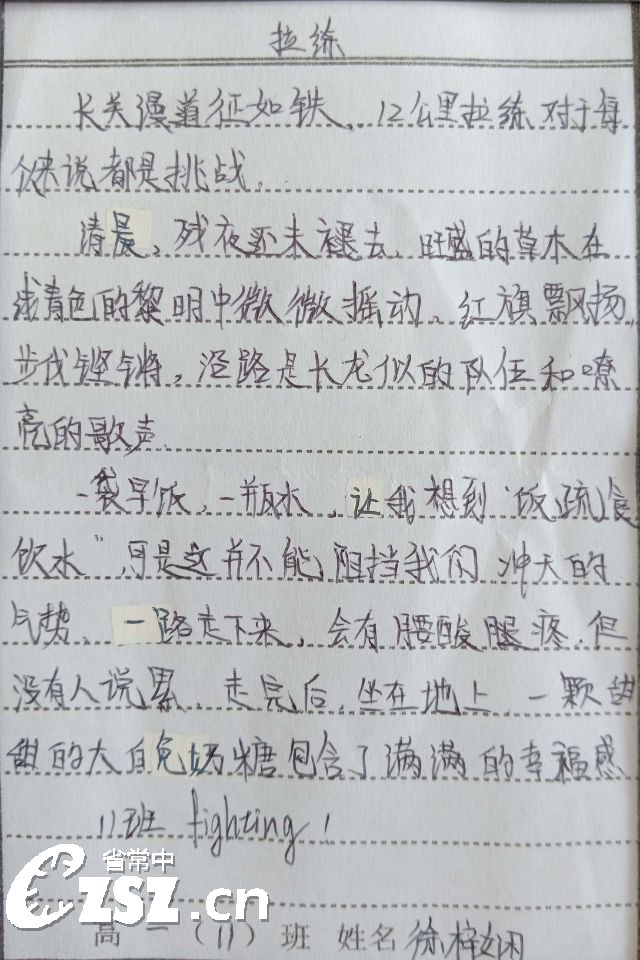 拉练
长关漫道征如铁，12公里拉练对于每
个人来说都是挑战。
清晨，残夜还未褪去，旺盛的草木在
浅青色的黎明中微微摇动。红旗飘扬，
步伐铿锵，沿路是长龙似的队伍和嘹
亮的歌声。
一袋早饭，一瓶水，让我想到“饭疏食
饮水”，可是这并不能阻挡我们冲天的
气势。一路走下来，会有腰酸腿疼，但
没有人说累。走完后，坐在地上，一颗甜
甜的大白兔奶糖包含了满满的幸福感
11班 fighting！
省常中
CZSZ.cn
高一（11）班 姓名 徐梓娴